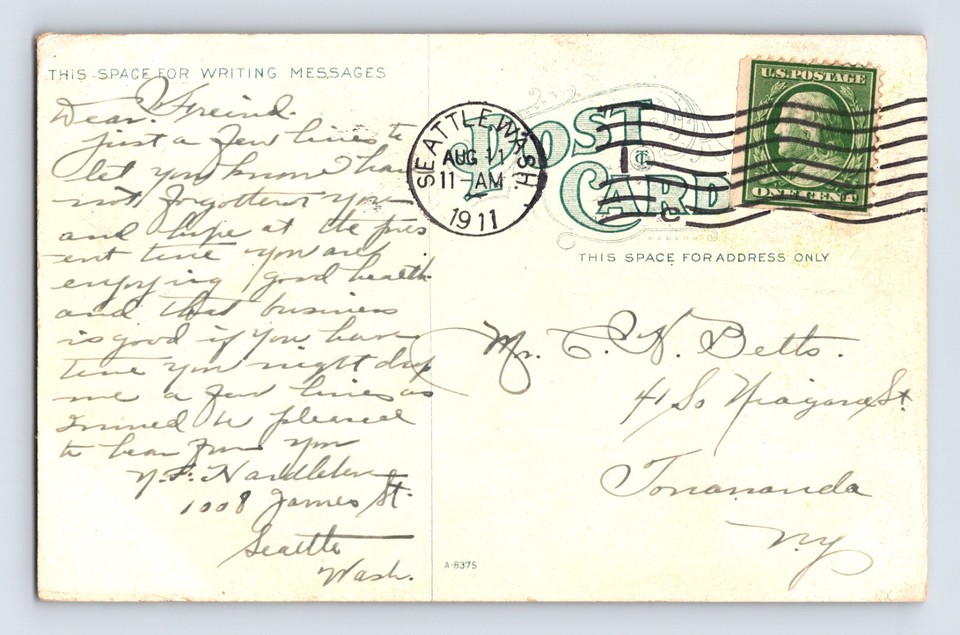 THIS SPACE FOR WRITING MESSAGES
Dear Freind.
just a few lines to
let you know I have
not forgotten you
and hope at the pres
ent time you are
enjoying good health
and that business
is good if you have
time you might drop
me a few lines as
I would be pleased
to hear from you
1008 James St.
Seattle
Wash.
POST
CARD
SEATTLE, WASH.
AUG 11
11-AM
1911
U.S. POSTAGE
ONE CENT 1
THIS SPACE FOR ADDRESS ONLY
Mr. C. N. Betts.
41 So Niagara St.
Tonananda
N.Y
A-8375